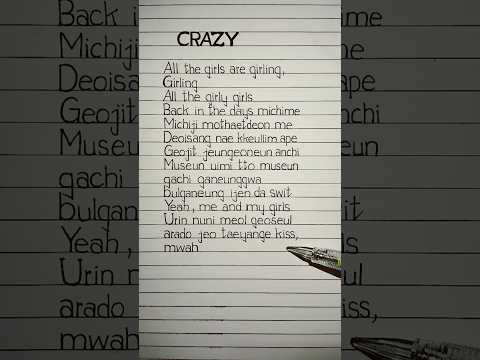 CRAZY
All the girls are girling,
Girling
All the girly girls
Back in the days michime
Michiji mothaetdeon me
Deoisang nae kkeullim ape
Geojit jeungeoneun anchi
Museun uimi tto museun
gachi ganeunggwa
Bulganeung ijen da swit
Yeah, me and my girls
Urin nuni meol geoseul
arado jeo taeyange kiss,
mwah